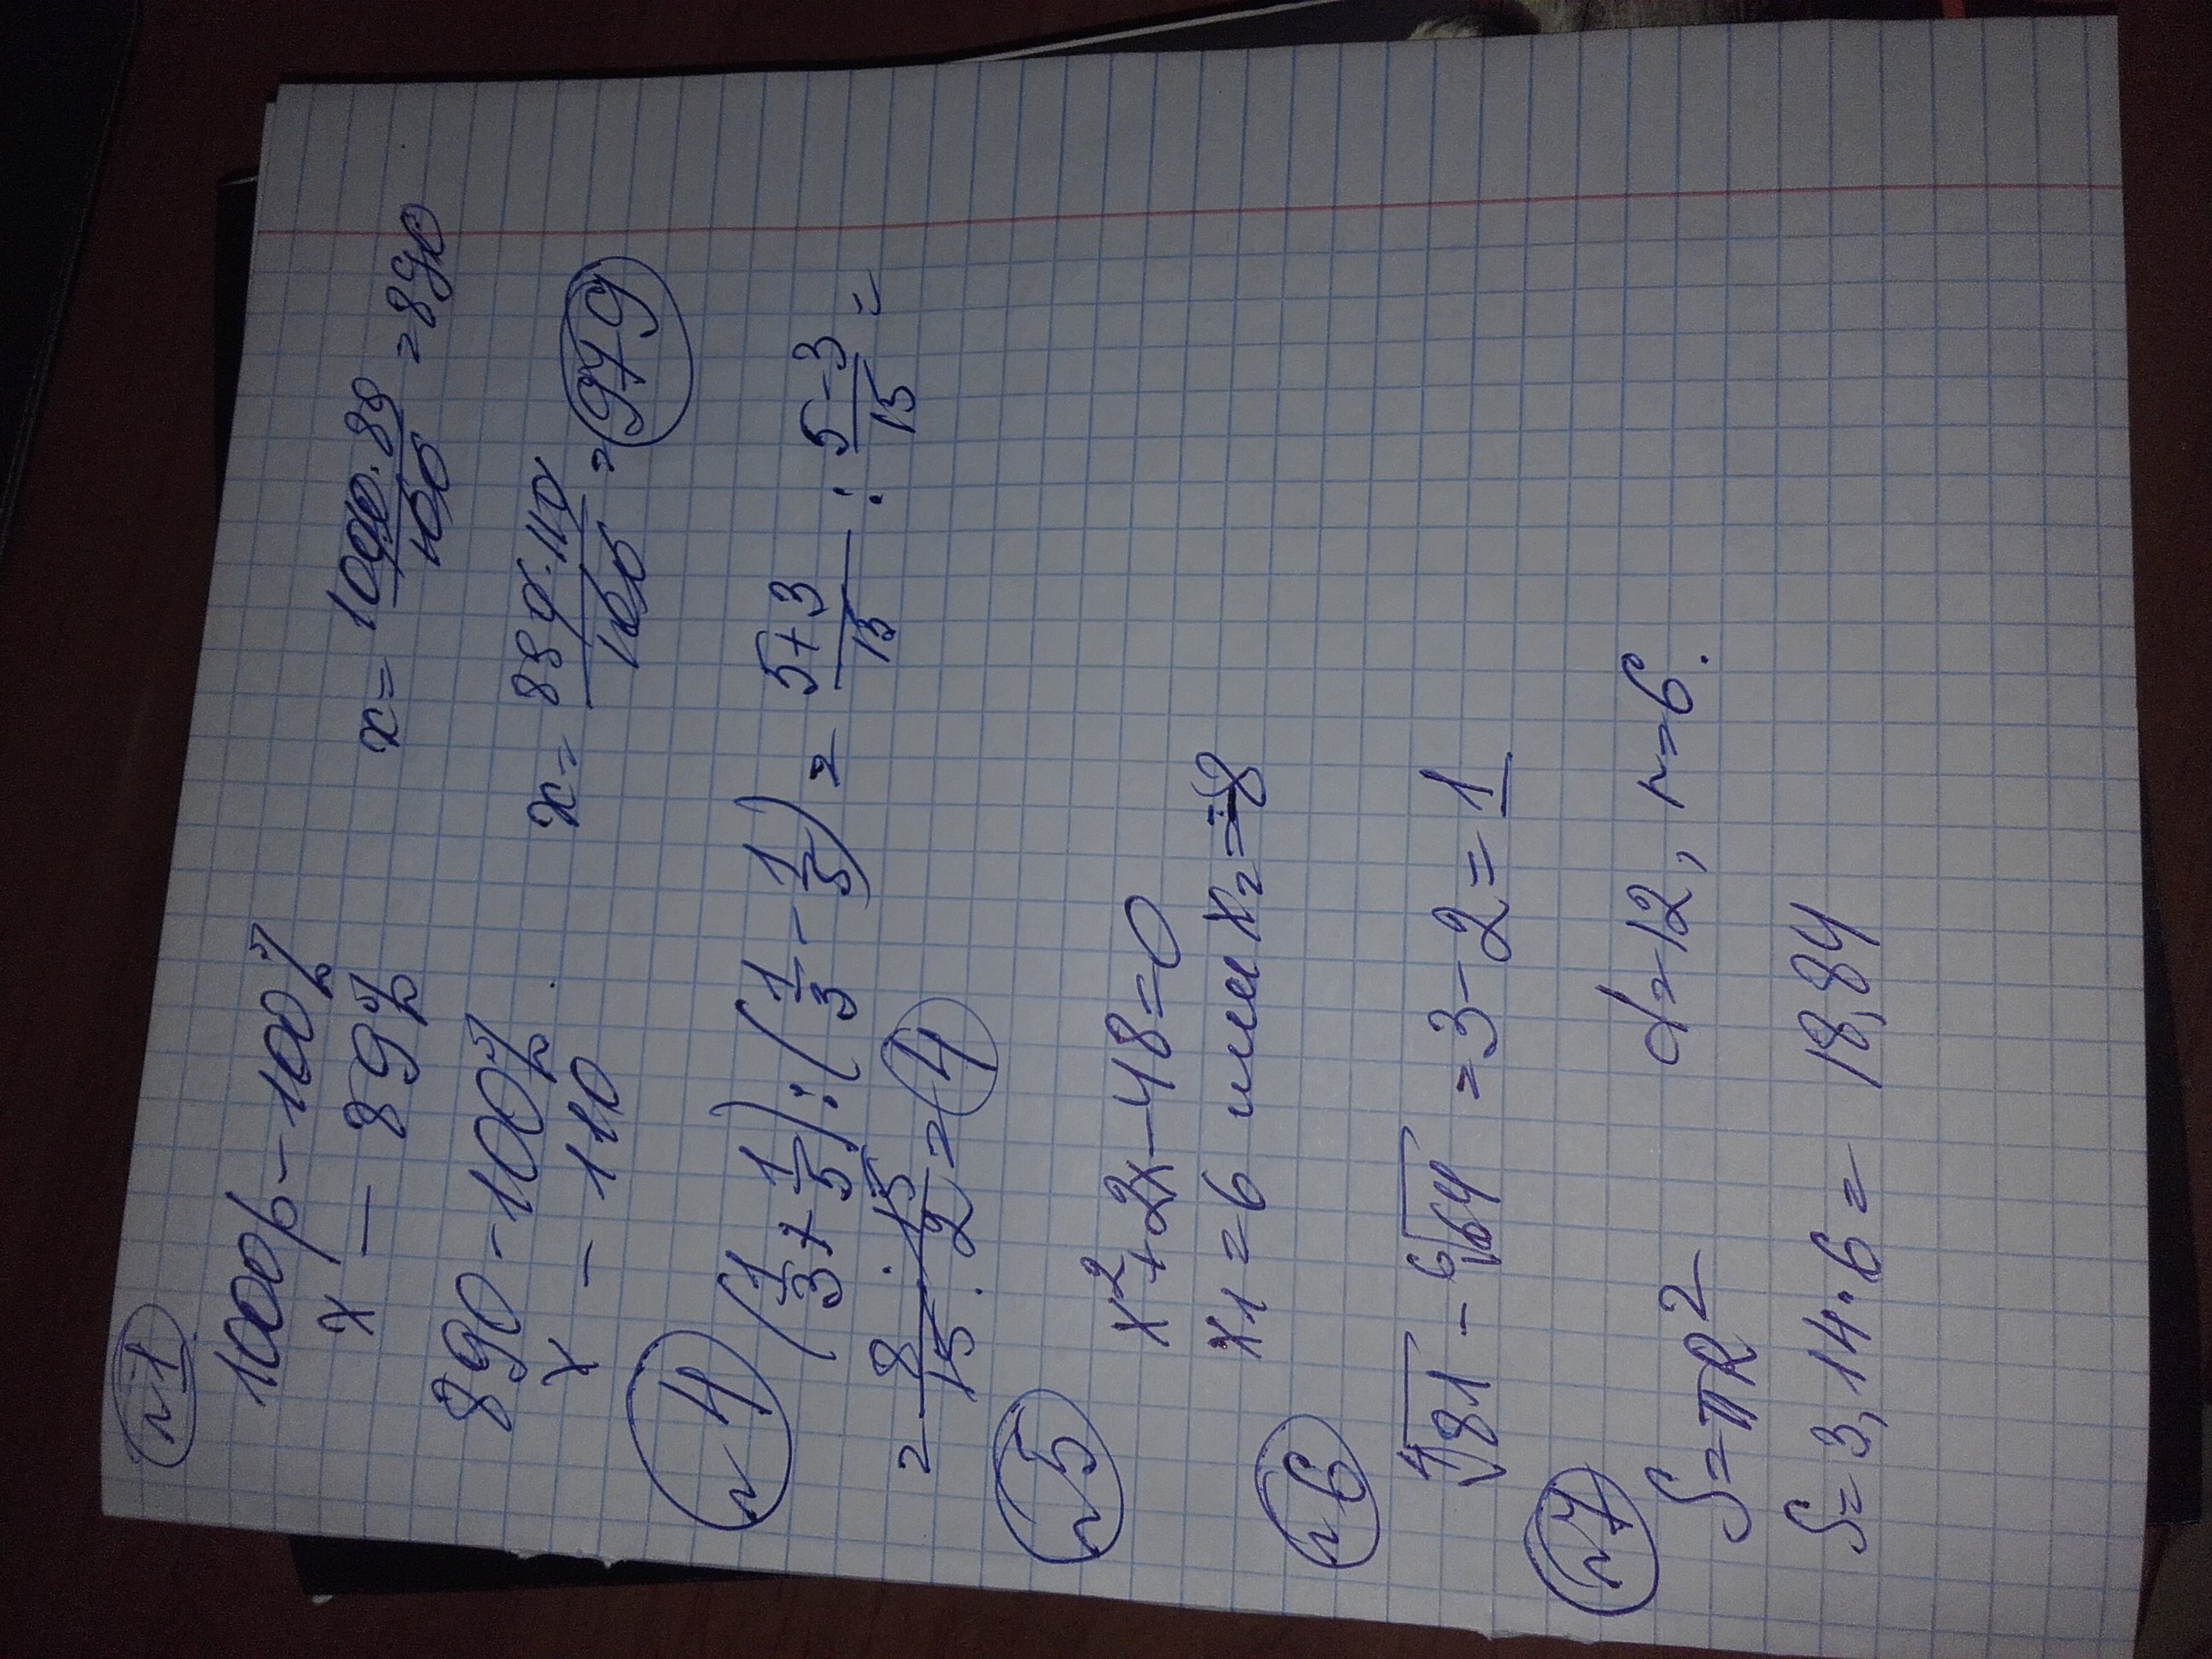 №1
1000р - 100%
x — 89%
x = 1000·89/100 = 890
890 - 100%
x - 110
x = 890·110/100 = 979
№4 (1/3 + 1/5) : (1/3 - 1/5) = 5+3/15 : 5-3/15 =
= 8/15 · 15/2 = 4
№5
x² + 2x - 48 = 0
x₁ = 6 или x₂ = -8
№6
⁴√81 - ⁶√64 = 3 - 2 = 1
№7
S = πR² d = 12, r = 6.
S = 3,14·6 = 18,84